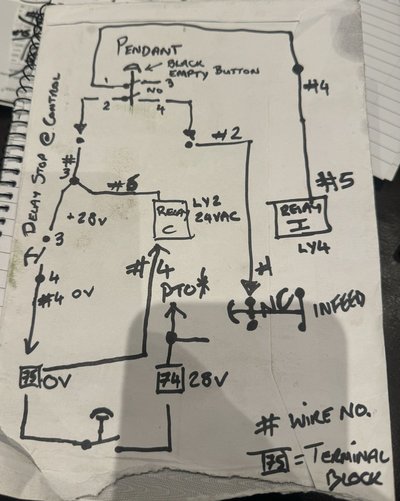 PENDANT
BLACK
EMPTY BUTTON
1 3
NO
2 4
#4
DELAY STOP @ CONTROL
#2
#
3
#6
#5
LY2
24VAC
RELAY
C
RELAY
I
LY4
+28V
3
#4
4
#4 0V
PTO*
#1
NC
INFEED
75 0V
74 28V
# WIRE NO.
75 = TERMINAL
BLOCK